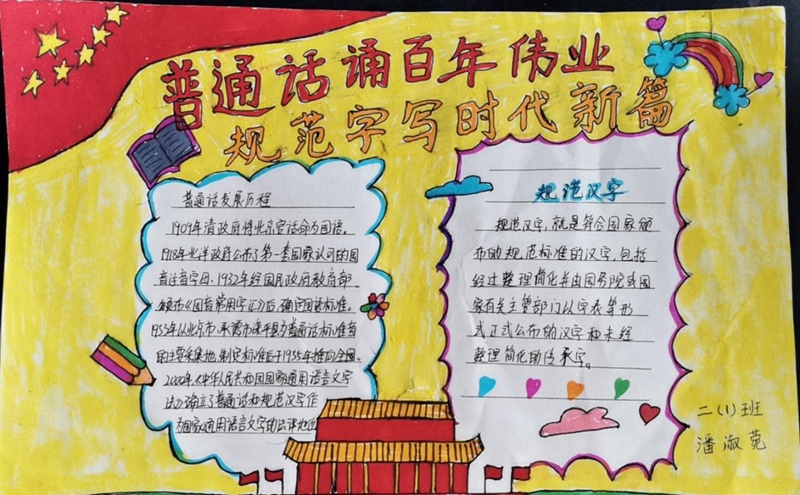 普通话诵百年伟业
规范字写时代新篇
普通话发展历程
1909年清政府将北京官话命为国语。
1918年北洋政府公布了第一套国家认可的国
音注音字母,1932年经国民政府教育部
颁布《国音常用字汇》后,确定国语标准。
1953年以北京市、承德市滦平县为普通话标准音
的主要采集地,制定标准后于1955年推向全国。
2000年《中华人民共和国国家通用语言文字
法》确立了普通话和规范汉字作
为国家通用语言文字的法律地位
规范汉字
规范汉字,就是符合国家颁
布的规范标准的汉字,包括
经过整理简化并由国务院或国
家有关主管部门以字表等形
式正式公布的汉字和未经
整理简化的传承字。
二(1)班
潘淑菀